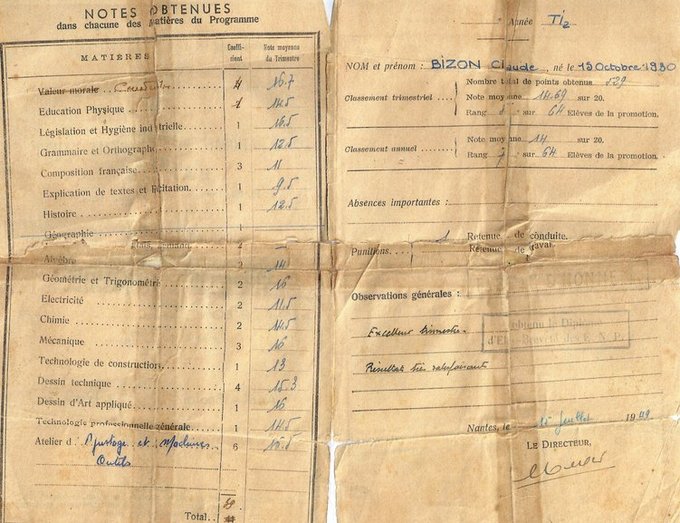 NOTES OBTENUES
dans chacune des Matières du Programme
MATIÈRES
Coeffi-
cient
Note moyenne
du Trimestre
Valeur morale 4 16.7
Education Physique 1 14.5
Législation et Hygiène industrielle 1 16.5
Grammaire et Orthographe 1 12.5
Composition française 3 11
Explication de textes et Récitation 1 9.5
Histoire 1 12.5
Géographie
Algèbre 2 14
Géométrie et Trigonométrie 2 16
Electricité 2 11.5
Chimie 2 14.5
Mécanique 3 16
Technologie de construction 1 13
Dessin technique 4 15.3
Dessin d'Art appliqué 1 16
Technologie professionnelle générale 1 14.5
Atelier d'Ajustage et Machines 6
Outils
Total
Année TI2
NOM et prénom : BIZON Claude, né le 19 Octobre 1930
Nombre total de points obtenus 529
Classement trimestriel
Note moyenne 14.69 sur 20.
Rang sur 64 Elèves de la promotion.
Classement annuel
Note moyenne 14 sur 20.
Rang 7 sur 64 Elèves de la promotion.
Absences importantes :
Punitions
1 Retenue de conduite.
Retenue de travail.
Observations générales :
Excellent trimestre.
obtenu le Diplôme
Résultats très satisfaisants
Nantes, le 15 Juillet 1949
LE DIRECTEUR,